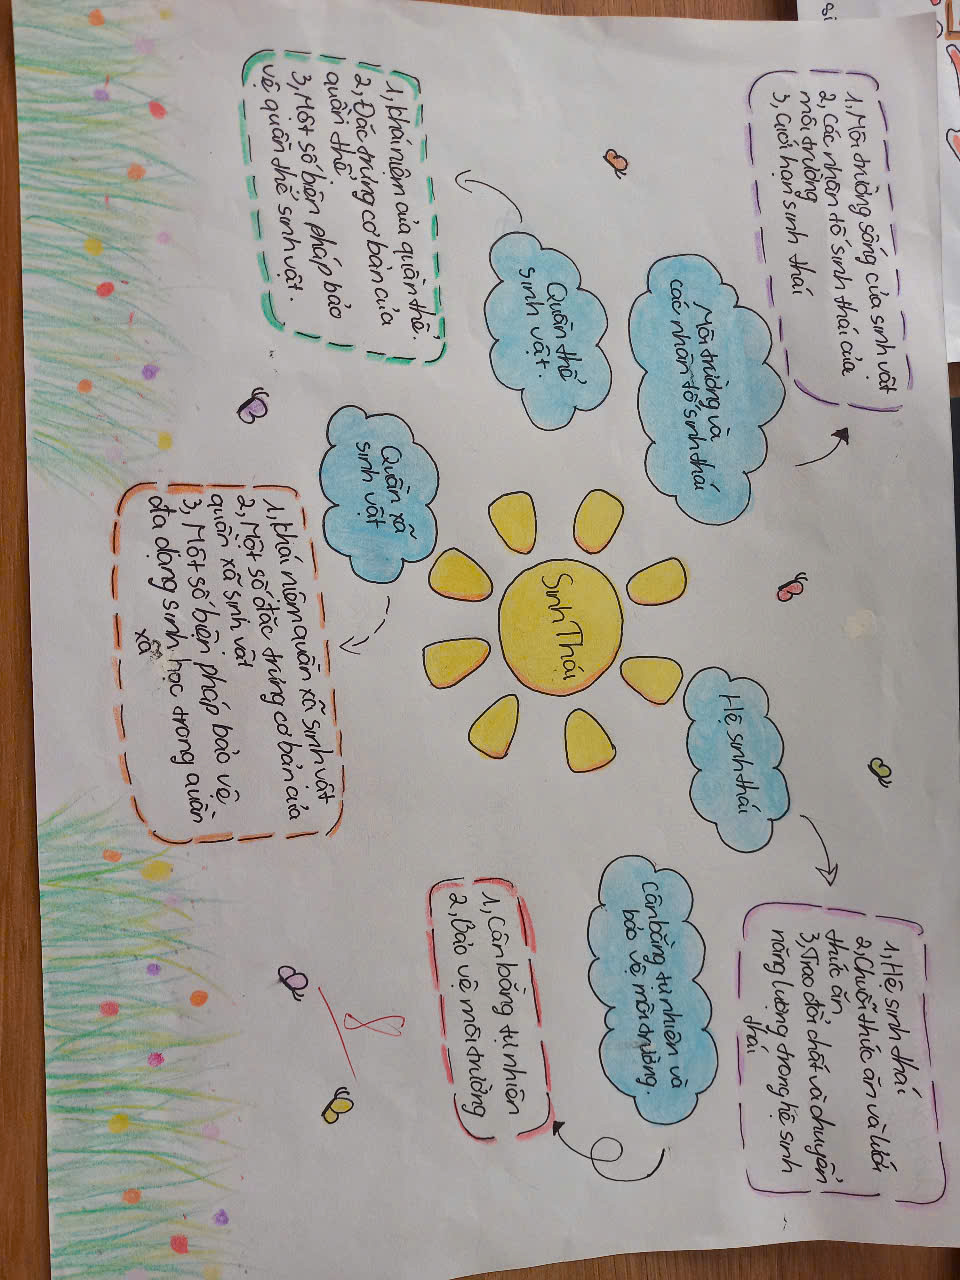 Sinh Thái
Môi trường và
các nhân tố sinh thái
1, Môi trường sống của sinh vật
2, Các nhân tố sinh thái của
môi trường
3, Giới hạn sinh thái
Quần thể
sinh vật.
1, khái niệm của quần thể.
2, Đặc trưng cơ bản của
quần thể
3, Một số biện pháp bảo
vệ quần thể sinh vật.
Quần xã
sinh vật
1, khái niệm quần xã sinh vật
2, Một số đặc trưng cơ bản của
quần xã sinh vật
3, Một số biện pháp bảo vệ
đa dạng sinh học trong quần
xã
Hệ sinh thái
1, Hệ sinh thái
2, Chuỗi thức ăn và lưới
thức ăn
3, Trao đổi chất và chuyển
năng lượng trong hệ sinh
thái
Cân bằng tự nhiên và
bảo vệ môi trường.
1, Cân bằng tự nhiên
2, Bảo vệ môi trường
8